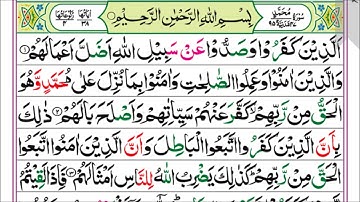 بِسْمِ اللهِ الرَّحْمٰنِ الرَّحِيْمِ
اَلَّذِيْنَ كَفَرُوْا وَصَدُّوْا عَنْ سَبِيْلِ اللهِ اَضَلَّ اَعْمَالَهُمْ
وَالَّذِيْنَ اٰمَنُوْا وَعَمِلُوا الصّٰلِحٰتِ وَاٰمَنُوْا بِمَا نُزِّلَ عَلٰى مُحَمَّدٍ وَّهُوَ
الْحَقُّ مِنْ رَّبِّهِمْ كَفَّرَ عَنْهُمْ سَيِّاٰتِهِمْ وَاَصْلَحَ بَالَهُمْ ذٰلِكَ
بِاَنَّ الَّذِيْنَ كَفَرُوا اتَّبَعُوا الْبَاطِلَ وَاَنَّ الَّذِيْنَ اٰمَنُوا اتَّبَعُوا
الْحَقَّ مِنْ رَّبِّهِمْ كَذٰلِكَ يَضْرِبُ اللهُ لِلنَّاسِ اَمْثَالَهُمْ فَاِذَا لَقِيْتُمُ